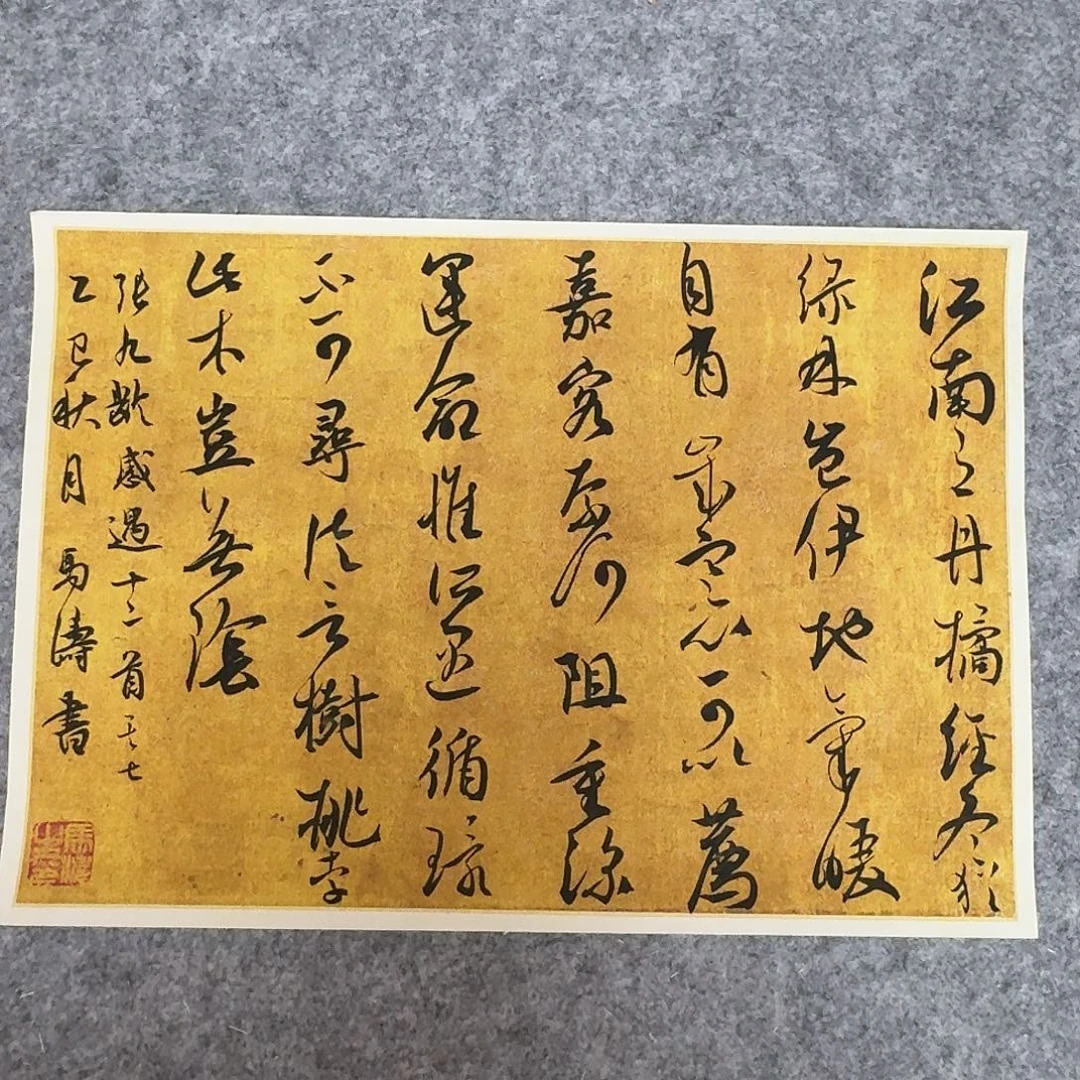 江南有丹橘經冬猶
綠林豈伊地氣暖
自有歲寒心可以薦
嘉客奈何阻重深
運命惟所遇循環
不可尋徒言樹桃李
此木豈無陰
張九齡感遇十二首其七
乙巳秋月 馬濤書